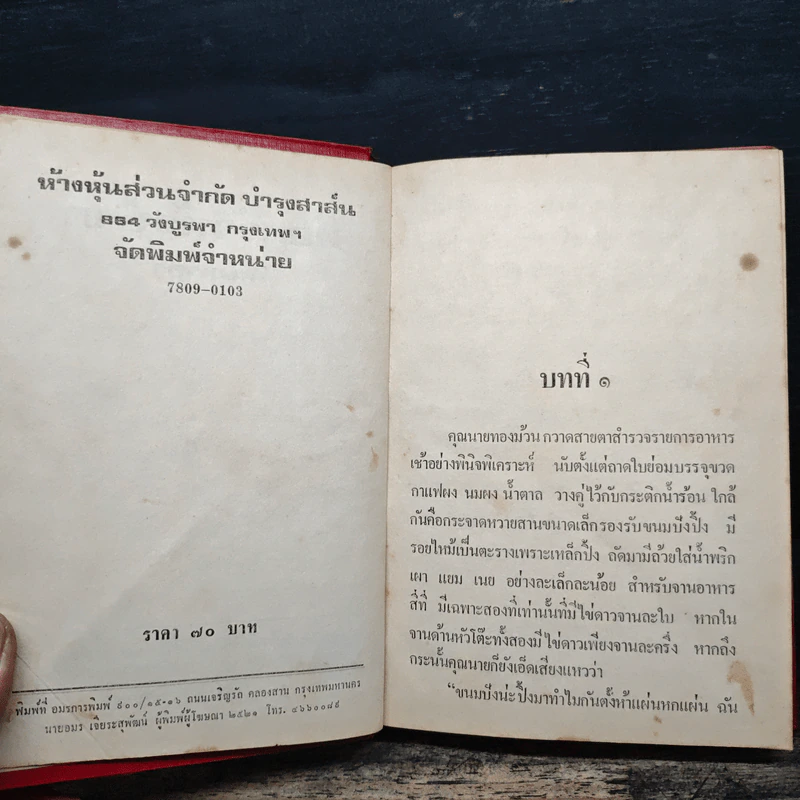 ห้างหุ้นส่วนจำกัด บำรุงสาส์น
๘๘๔ วังบูรพา กรุงเทพฯ
จัดพิมพ์จำหน่าย
7809-0103
ราคา ๗๐ บาท
พิมพ์ที่ อมรการพิมพ์ ๙๐๐/๑๕-๑๖ ถนนเจริญรัถ คลองสาน กรุงเทพมหานคร
นายอมร เจียระสุพัฒน์ ผู้พิมพ์ผู้โฆษณา ๒๕๒๑ โทร. ๔๖๖๐๐๘๙
บทที่ ๑
คุณนายทองม้วน กวาดสายตาสำรวจรายการอาหาร
เช้าอย่างพินิจพิเคราะห์ นับตั้งแต่ถาดใบย่อมบรรจุขวด
กาแฟผง นมผง น้ำตาล วางคู่ไว้กับกระติกน้ำร้อน ใกล้
กันคือกระจาดหวายสานขนาดเล็กรองรับขนมปังปิ้ง มี
รอยไหม้เป็นตะรางเพราะเหล็กปิ้ง ถัดมามีถ้วยใส่น้ำพริก
เผา แยม เนย อย่างละเล็กละน้อย สำหรับจานอาหาร
สี่ที่ มีเฉพาะสองที่เท่านั้นที่มีไข่ดาวจานละใบ หากใน
จานด้านหัวโต๊ะทั้งสองมีไข่ดาวเพียงจานละครึ่ง หากถึง
กระนั้นคุณนายก็ยังเอ็ดเสียงแหวว่า
“ขนมปังน่ะ ปิ้งมาทำไมกันตั้งห้าแผ่นหกแผ่น ฉัน